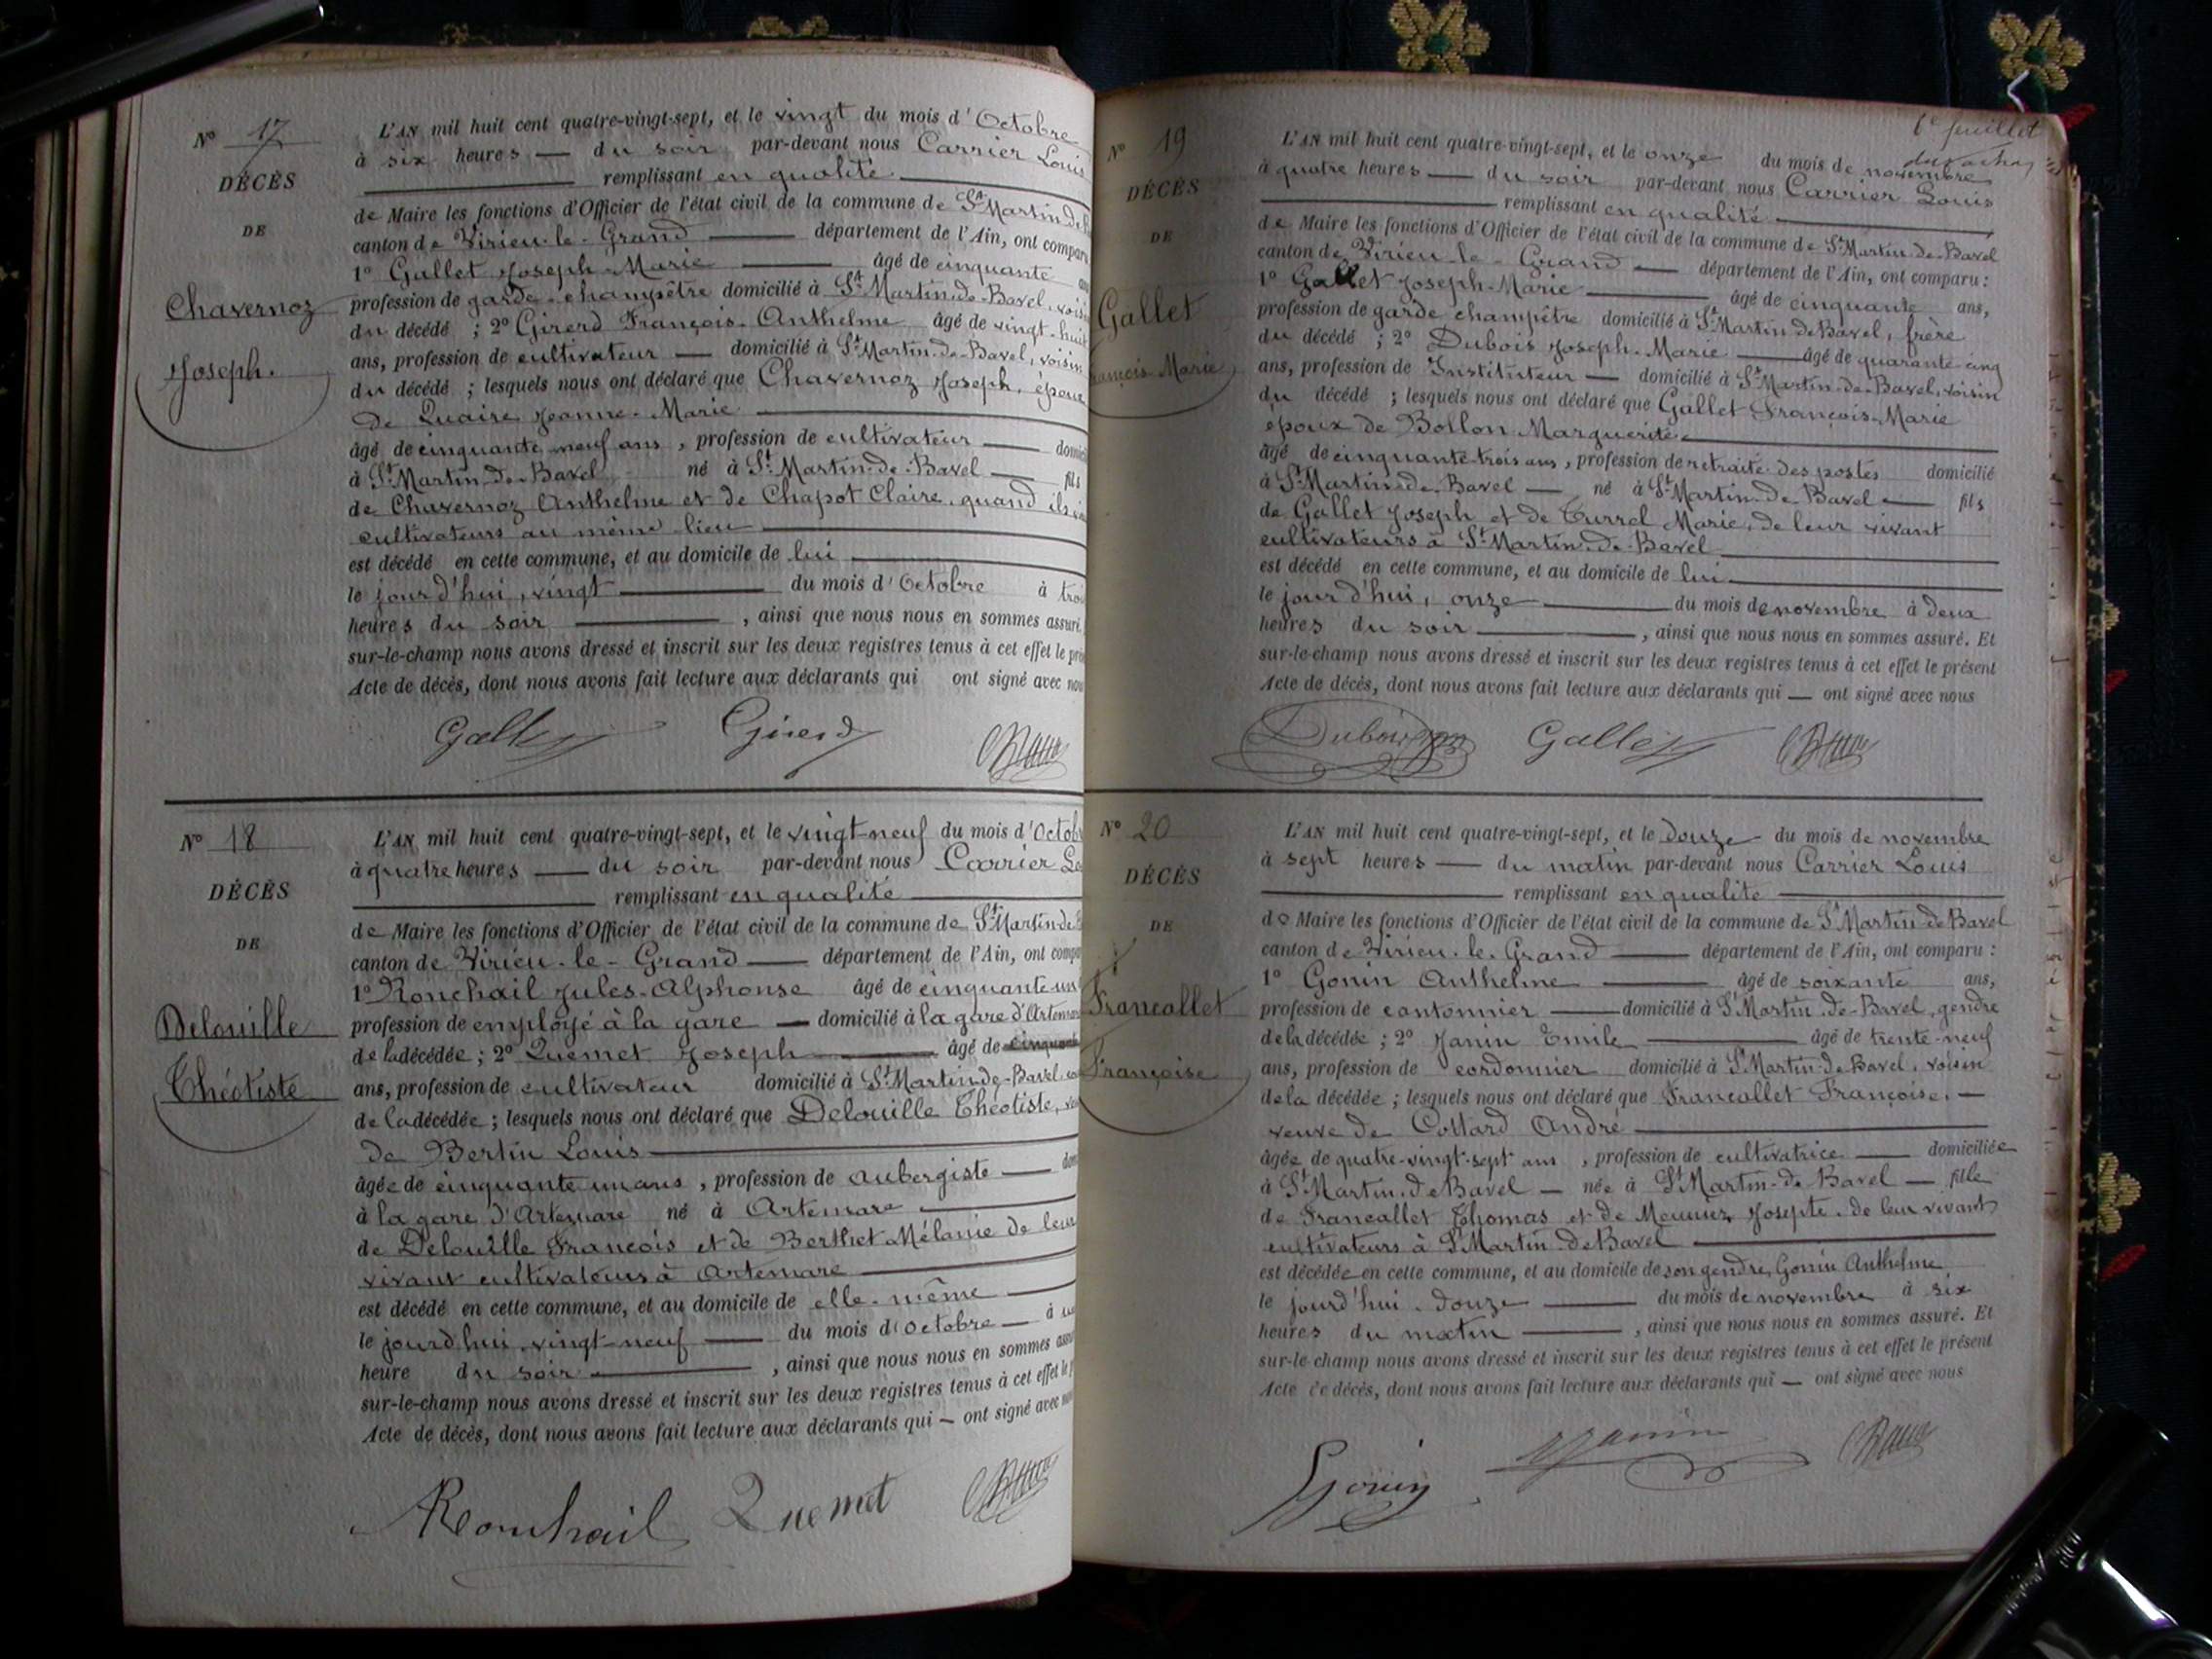 N° 17
DÉCÈS
DE
Chavernoz
Joseph.
L'AN mil huit cent quatre-vingt-sept, et le vingt du mois d'Octobre
à six heures — du soir par-devant nous Carrier Louis
remplissant en qualité
de Maire les fonctions d'Officier de l'état civil de la commune de St Martin de
canton de Virieu-le-Grand — département de l'Ain, ont comparu
1° Gallet Joseph-Marie — âgé de cinquante
profession de garde-champêtre domicilié à St Martin-de-Bavel, voisin
du décédé ; 2° Girerd François-Anthelme âgé de vingt-huit
ans, profession de cultivateur — domicilié à St Martin-de-Bavel, voisin
du décédé ; lesquels nous ont déclaré que Chavernoz Joseph, époux
de Quaire Jeanne-Marie
âgé de cinquante-neuf ans, profession de cultivateur —
à St Martin-de-Bavel né à St Martin-de-Bavel — fils
de Chavernoz Anthelme et de Chapot Claire, quand ils
cultivateurs au même lieu
est décédé en cette commune, et au domicile de lui
le jourd'hui, vingt — du mois d'Octobre à
heures du soir — , ainsi que nous nous en sommes assuré.
sur-le-champ nous avons dressé et inscrit sur les deux registres tenus à cet effet le
Acte de décès, dont nous avons fait lecture aux déclarants qui ont signé avec nous
Gallet Girerd
N° 18
DÉCÈS
DE
Delouille
Théotiste
L'AN mil huit cent quatre-vingt-sept, et le vingt-neuf du mois d'Octob
à quatre heures — du soir par-devant nous Carrier
remplissant en qualité
de Maire les fonctions d'Officier de l'état civil de la commune de St Martin-de
canton de Virieu-le-Grand — département de l'Ain, ont
1° Ronchail Jules-Alphonse âgé de cinquante-un
profession de employé à la gare — domicilié à la gare d'Artemare
de la décédée ; 2° Quemet Joseph — âgé de
ans, profession de cultivateur domicilié à St Martin-de-Bavel
de la décédée ; lesquels nous ont déclaré que Delouille Théotiste,
de Bertin Louis
âgée de cinquante-un ans, profession de aubergiste —
à la gare d'Artemare né à Artemare
de Delouille François et de Berthet Mélanie de leur
vivant cultivateurs à Artemare
est décédé en cette commune, et au domicile de elle-même
le jourd'hui, vingt-neuf — du mois d'Octobre — à
heure du soir — , ainsi que nous nous en sommes
sur-le-champ nous avons dressé et inscrit sur les deux registres tenus à cet effet le
Acte de décès, dont nous avons fait lecture aux déclarants qui — ont signé avec
Ronchail Quemet
6e feuillet
N° 19
DÉCÈS
DE
Gallet
François-Marie
L'AN mil huit cent quatre-vingt-sept, et le onze du mois de novembre
à quatre heures — du soir par-devant nous Carrier Louis
remplissant en qualité
de Maire les fonctions d'Officier de l'état civil de la commune de St Martin-de-Bavel
canton de Virieu-le-Grand — département de l'Ain, ont comparu :
1° Gallet Joseph-Marie — âgé de cinquante ans,
profession de garde champêtre domicilié à St Martin de Bavel, frère
du décédé ; 2° Dubois Joseph-Marie — âgé de quarante-cinq
ans, profession de Instituteur — domicilié à St Martin-de-Bavel, voisin
du décédé ; lesquels nous ont déclaré que Gallet François-Marie
époux de Bollon Marguerite
âgé de cinquante-trois ans, profession de retraité des postes domicilié
à St Martin-de-Bavel — né à St Martin-de-Bavel — fils
de Gallet Joseph et de Turrel Marie, de leur vivant
cultivateurs à St Martin-de-Bavel
est décédé en cette commune, et au domicile de lui
le jourd'hui, onze — du mois de novembre à deux
heures du soir — , ainsi que nous nous en sommes assuré. Et
sur-le-champ nous avons dressé et inscrit sur les deux registres tenus à cet effet le présent
Acte de décès, dont nous avons fait lecture aux déclarants qui — ont signé avec nous
Dubois Gallet
N° 20
DÉCÈS
DE
Francallet
Françoise
L'AN mil huit cent quatre-vingt-sept, et le douze du mois de novembre
à sept heures — du matin par-devant nous Carrier Louis
remplissant en qualité
de Maire les fonctions d'Officier de l'état civil de la commune de St Martin-de-Bavel
canton de Virieu-le-Grand — département de l'Ain, ont comparu :
1° Gonin Anthelme — âgé de soixante ans,
profession de cantonnier — domicilié à St Martin-de-Bavel, gendre
de la décédée ; 2° Janin Emile — âgé de trente-neuf
ans, profession de cordonnier domicilié à St Martin-de-Bavel, voisin
de la décédée ; lesquels nous ont déclaré que Francallet Françoise, —
veuve de Collard André
âgée de quatre-vingt-sept ans, profession de cultivatrice — domiciliée
à St Martin-de-Bavel — née à St Martin-de-Bavel — fille
de Francallet Thomas et de Meunier Josepte, de leur vivant
cultivateurs à St Martin-de-Bavel
est décédée en cette commune, et au domicile de son gendre, Gonin Anthelme
le jourd'hui, douze — du mois de novembre à six
heures du matin — , ainsi que nous nous en sommes assuré. Et
sur-le-champ nous avons dressé et inscrit sur les deux registres tenus à cet effet le présent
Acte de décès, dont nous avons fait lecture aux déclarants qui — ont signé avec nous
Gonin Janin